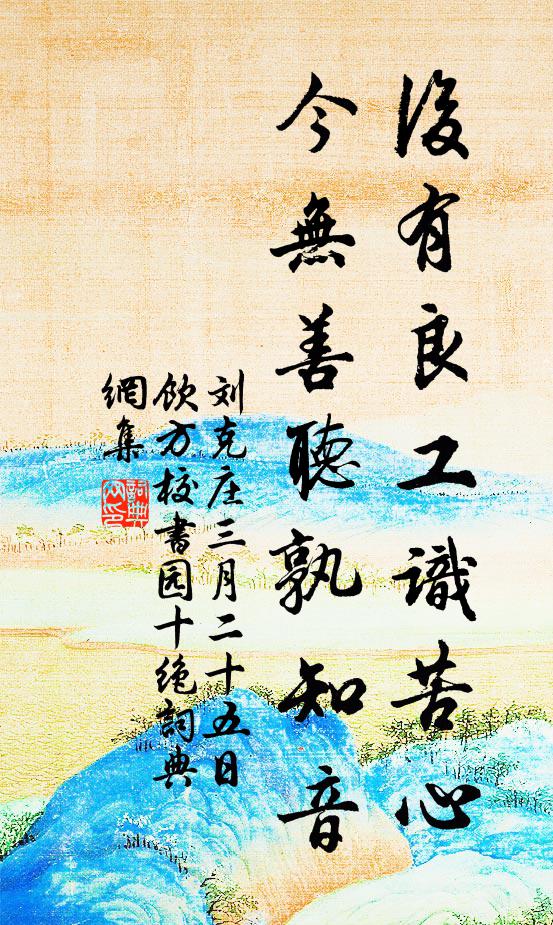 後有良工識苦心
今無善聽孰知音
刘克庄三月二十五日
饮方校書园十绝詞典
網集